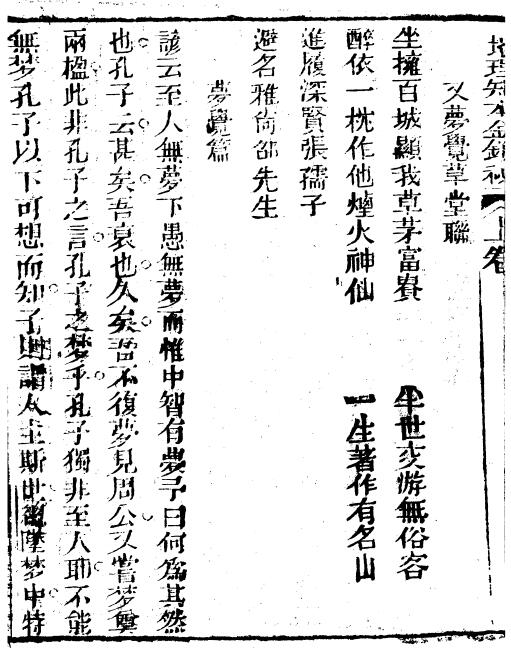 地理知本金鎖秘 上卷
又夢覺草堂聯
坐擁百城顯我草茅富賽 半世交游無俗客
醉依一枕作他煙火神仙 一生著作有名山
進履深賢張孺子
避名雅尙邵先生
夢覺篇
諺云至人無夢下愚無夢而惟中智有夢予曰何爲其然
也孔子云甚矣吾衰也久矣吾不復夢見周公又嘗梦奠
兩楹此非孔子之言孔子之梦乎孔子獨非至人耶不能
無梦孔子以下可想而知予與謂人生斯世總墜梦中特